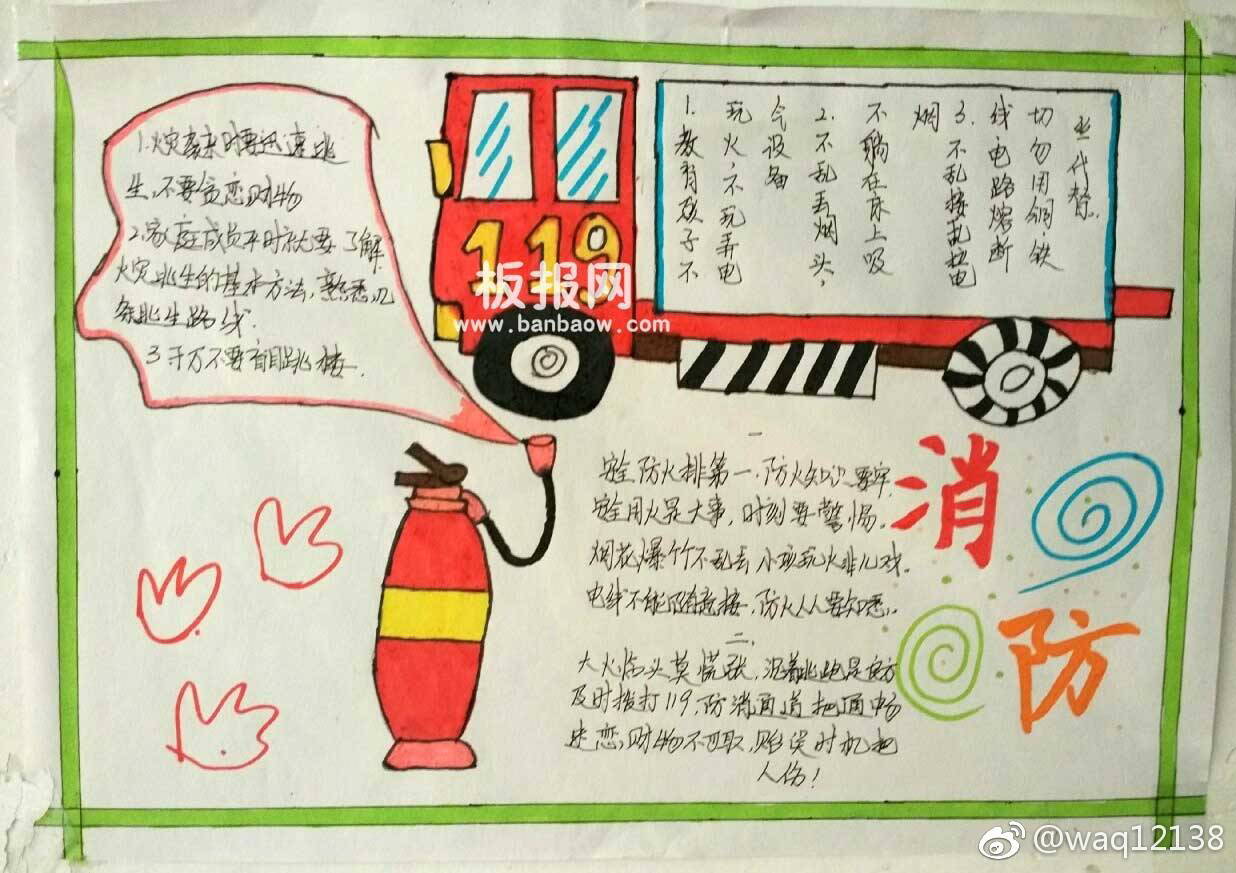 1.火灾袭来时要迅速逃
生,不要贪恋财物
2.家庭成员平时就要了解
火灾逃生的基本方法,熟悉几
条逃生路线.
3千万不要盲目跳楼.
119
1.教育孩子不
玩火,不玩弄电
气设备
2.不乱丢烟头,
不躺在床上吸
烟
3.不乱接乱拉电
线电路熔断
切勿用铜.铁
丝代替.
板报网
www.banbaow.com
消
防
一
安全防火排第一.防火知识要牢
安全用火是大事,时刻要警惕.
烟花爆竹不乱丢 小孩玩火非儿戏.
电线不能随意接,防火人人要知悉.
二.
大火临头莫慌张,沉着逃跑是良方
及时拨打119,防消通道把通畅
迷恋财物不可取,贻误时机把
人伤!
@waq12138